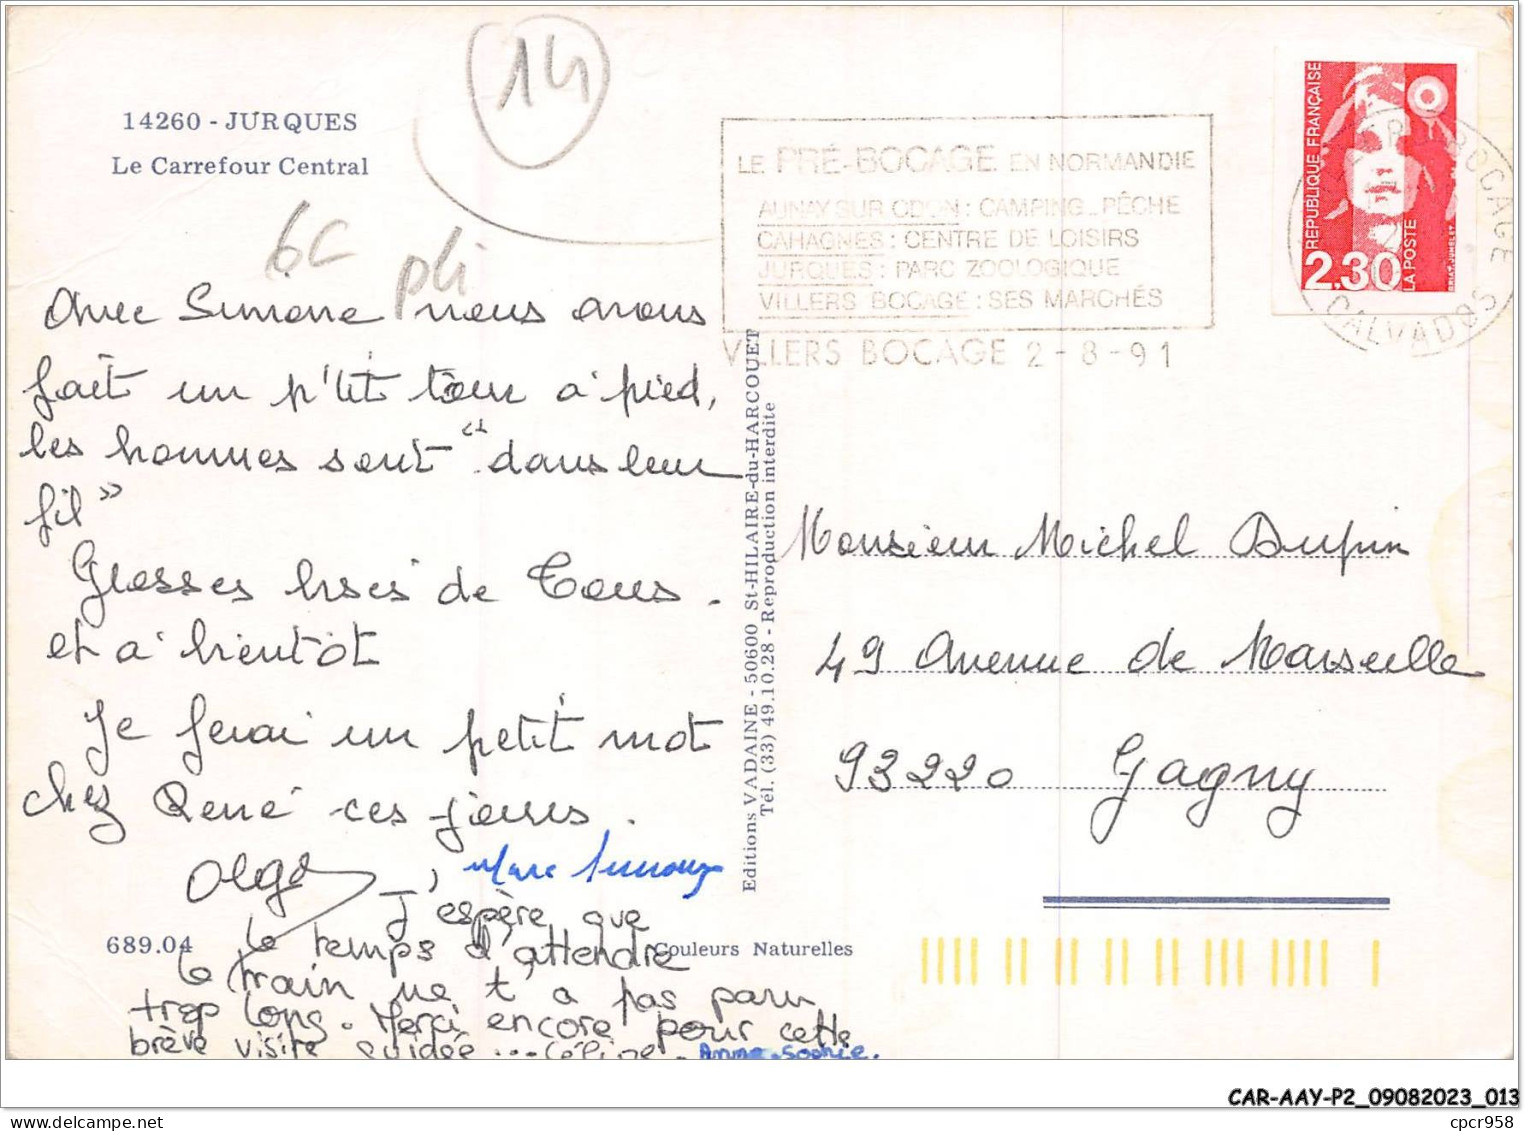 14
14260 - JURQUES
Le Carrefour Central
6C
pli
LE PRÉ-BOCAGE EN NORMANDIE
AUNAY SUR ODON : CAMPING - PÊCHE
CAHAGNES : CENTRE DE LOISIRS
JURQUES : PARC ZOOLOGIQUE
VILLERS BOCAGE : SES MARCHÉS
VILLERS BOCAGE 2 - 8 - 91
RÉPUBLIQUE FRANÇAISE
2.30
LA POSTE
BRIAT. JUMELET
BOCAGE
CALVADOS
Avec Simone nous avons
fait un p'tit tour à pied,
les hommes sont "dans leur
fil"
Grosses bises de Tous.
et à bientôt
Je ferai un petit mot
chez René ces jours.
Olga, Marc
J'espère que
le temps d'attendre
le train ne t'a pas paru
trop long. Merci encore pour cette
brève visite guidée... Céline. Anne-Sophie.
Editions VADAINE - 50600 St-HILAIRE-du-HARCOUET
Tél. (33) 49.10.28 - Reproduction interdite
Monsieur Michel Dupin
49 Avenue de Marseille
93220 Gagny
689.04
Couleurs Naturelles
CAR-AAY-P2_09082023_013
cpcr958